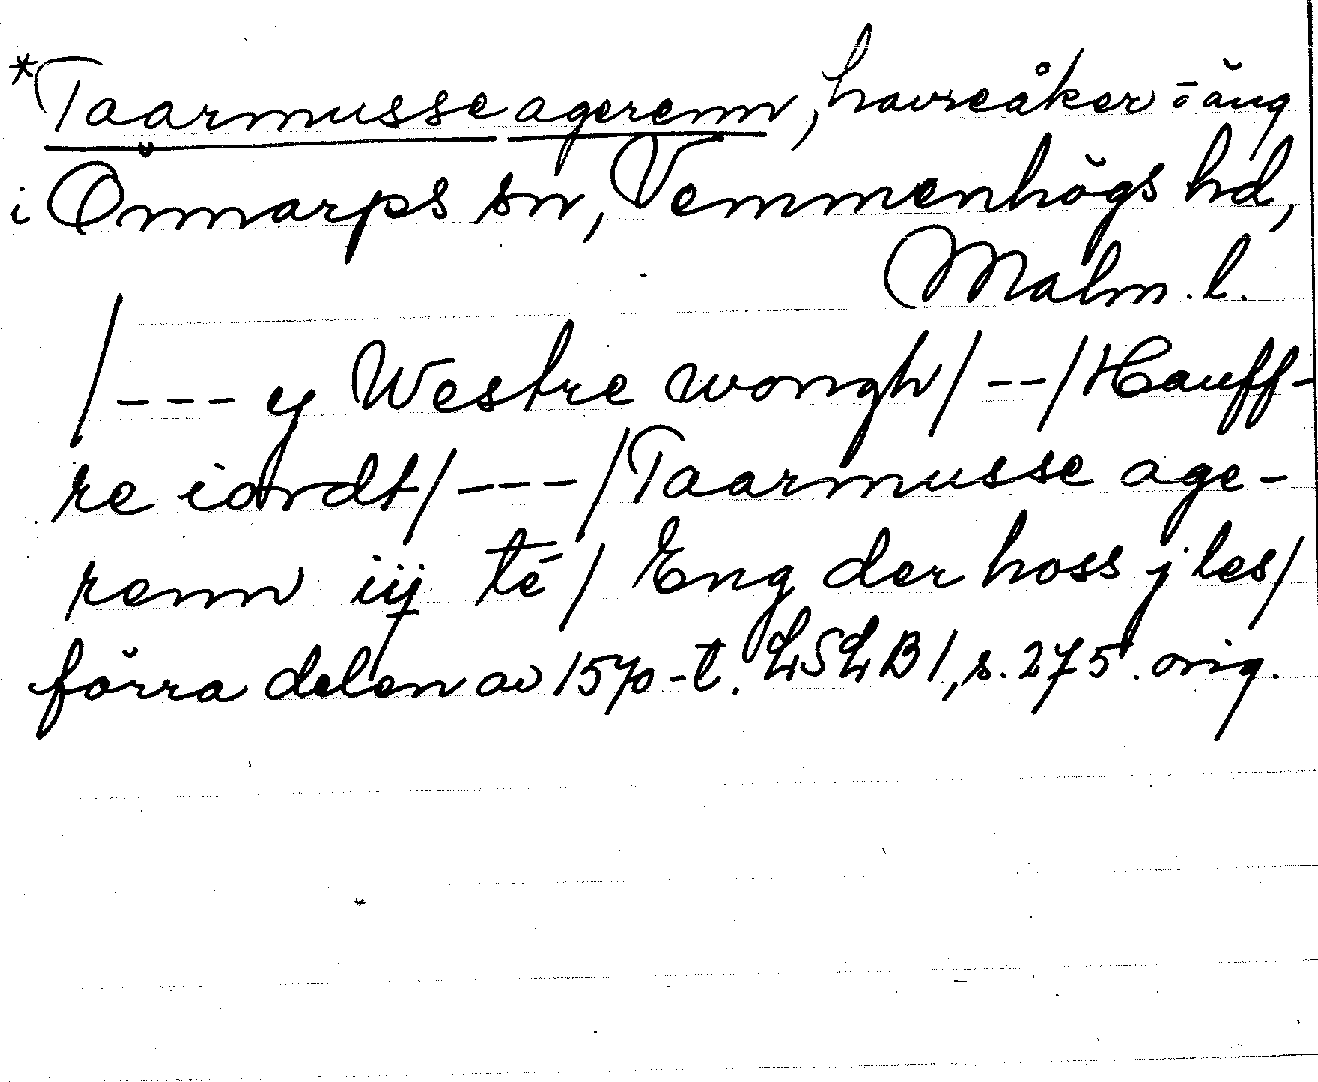 *Taarmusse agerenn, havreåker o äng
i Önnarps sn, Vemmenhögs hd,
Malm. l.
/--- y Westre wongh/--/Hauff-
re iordt/---/Taarmusse age-
renn iij té/ Eng der hoss j les/
förra delen av 1570-t. LSLB 1, s. 275. orig.